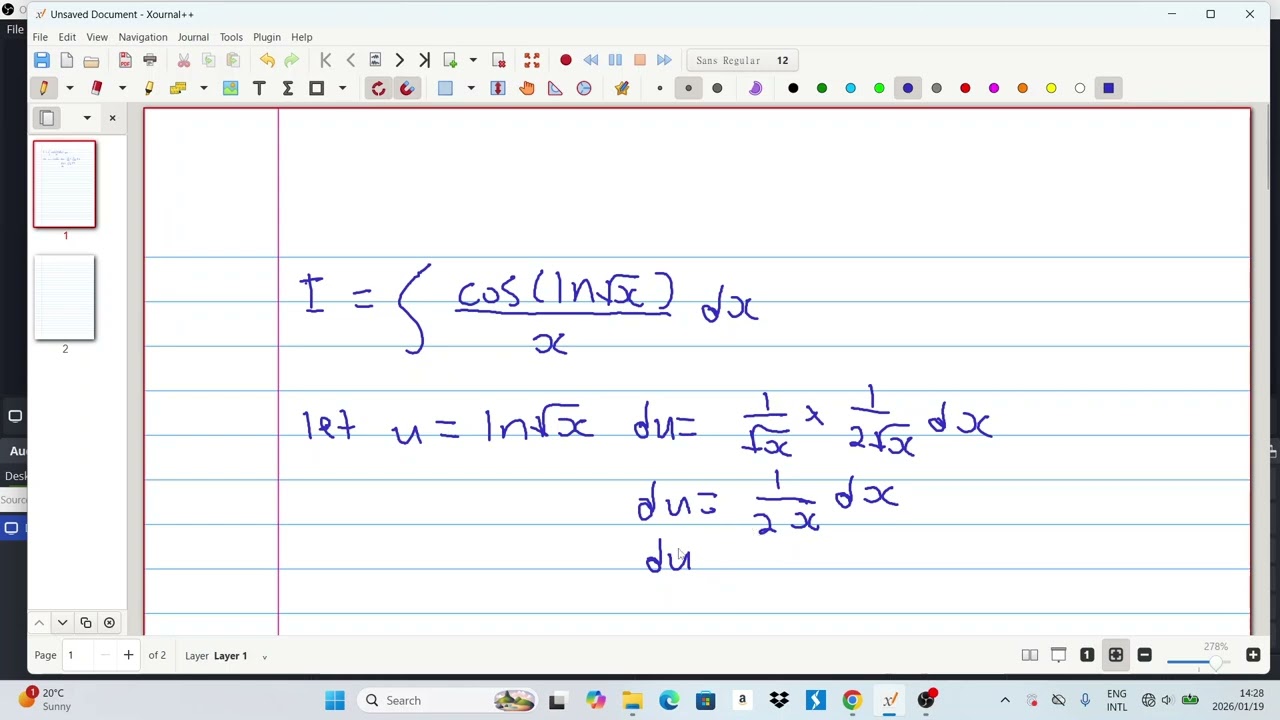 File
Unsaved Document - Xournal++
File Edit View Navigation Journal Tools Plugin Help
Sans Regular 12
1
2
I = ∫ cos(ln√x) / x dx
let u = ln√x du = 1/√x × 1/2√x dx
du = 1/2x dx
du
Page 1 of 2 Layer Layer 1
278%
Au
Desk
Sourc
1
20°C
Sunny
Search
ENG
INTL
14:28
2026/01/19